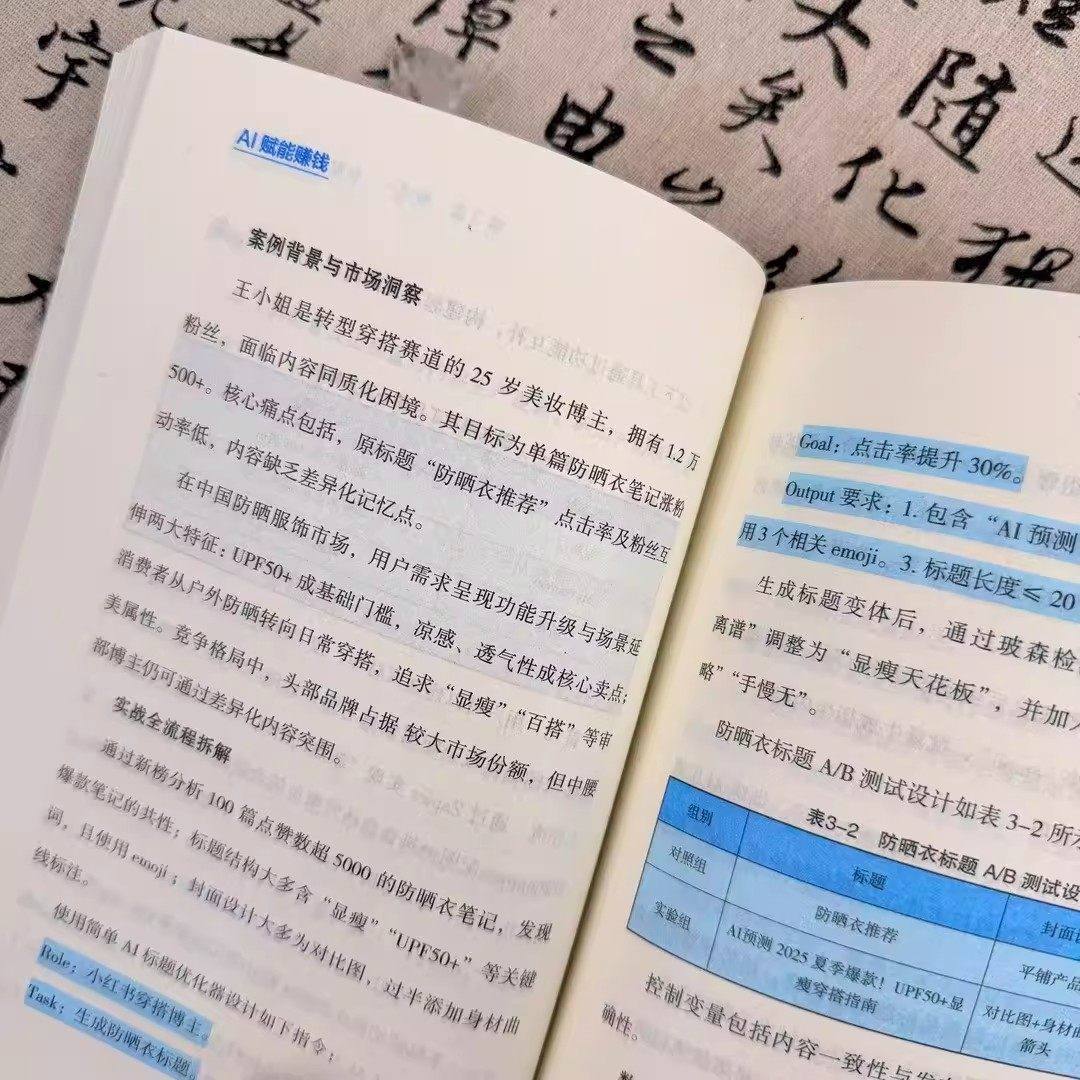 AI 赋能赚钱
案例背景与市场洞察
王小姐是转型穿搭赛道的 25 岁美妆博主，拥有 1.2 万
粉丝，面临内容同质化困境。其目标为单篇防晒衣笔记涨粉
500+。核心痛点包括，原标题“防晒衣推荐”点击率及粉丝互
动率低，内容缺乏差异化记忆点。
在中国防晒服饰市场，用户需求呈现功能升级与场景延
伸两大特征：UPF50+ 成基础门槛，凉感、透气性成核心卖点；
消费者从户外防晒转向日常穿搭，追求“显瘦”“百搭”等审
美属性。竞争格局中，头部品牌占据 较大市场份额，但中腰
部博主仍可通过差异化内容突围。
实战全流程拆解
通过新榜分析 100 篇点赞数超 5000 的防晒衣笔记，发现
爆款笔记的共性：标题结构大多含“显瘦”“UPF50+”等关键
词，且使用 emoji；封面设计大多为对比图，过半添加身材曲
线标注。
使用简单 AI 标题优化器设计如下指令：
Role：小红书穿搭博主。
Task：生成防晒衣标题。
Goal：点击率提升 30%。
Output 要求：1. 包含“AI 预测
用3个相关 emoji。3. 标题长度≤ 20
生成标题变体后，通过玻森检
离谱”调整为“显瘦天花板”，并加入
略”“手慢无”。
防晒衣标题 A/B 测试设计如表 3-2 所
表3-2 防晒衣标题 A/B 测试设
组别 标题 封面
对照组 防晒衣推荐 平铺产品
实验组 AI预测 2025 夏季爆款！UPF50+显
瘦穿搭指南 对比图+身材曲
箭头
控制变量包括内容一致性与发
确性。